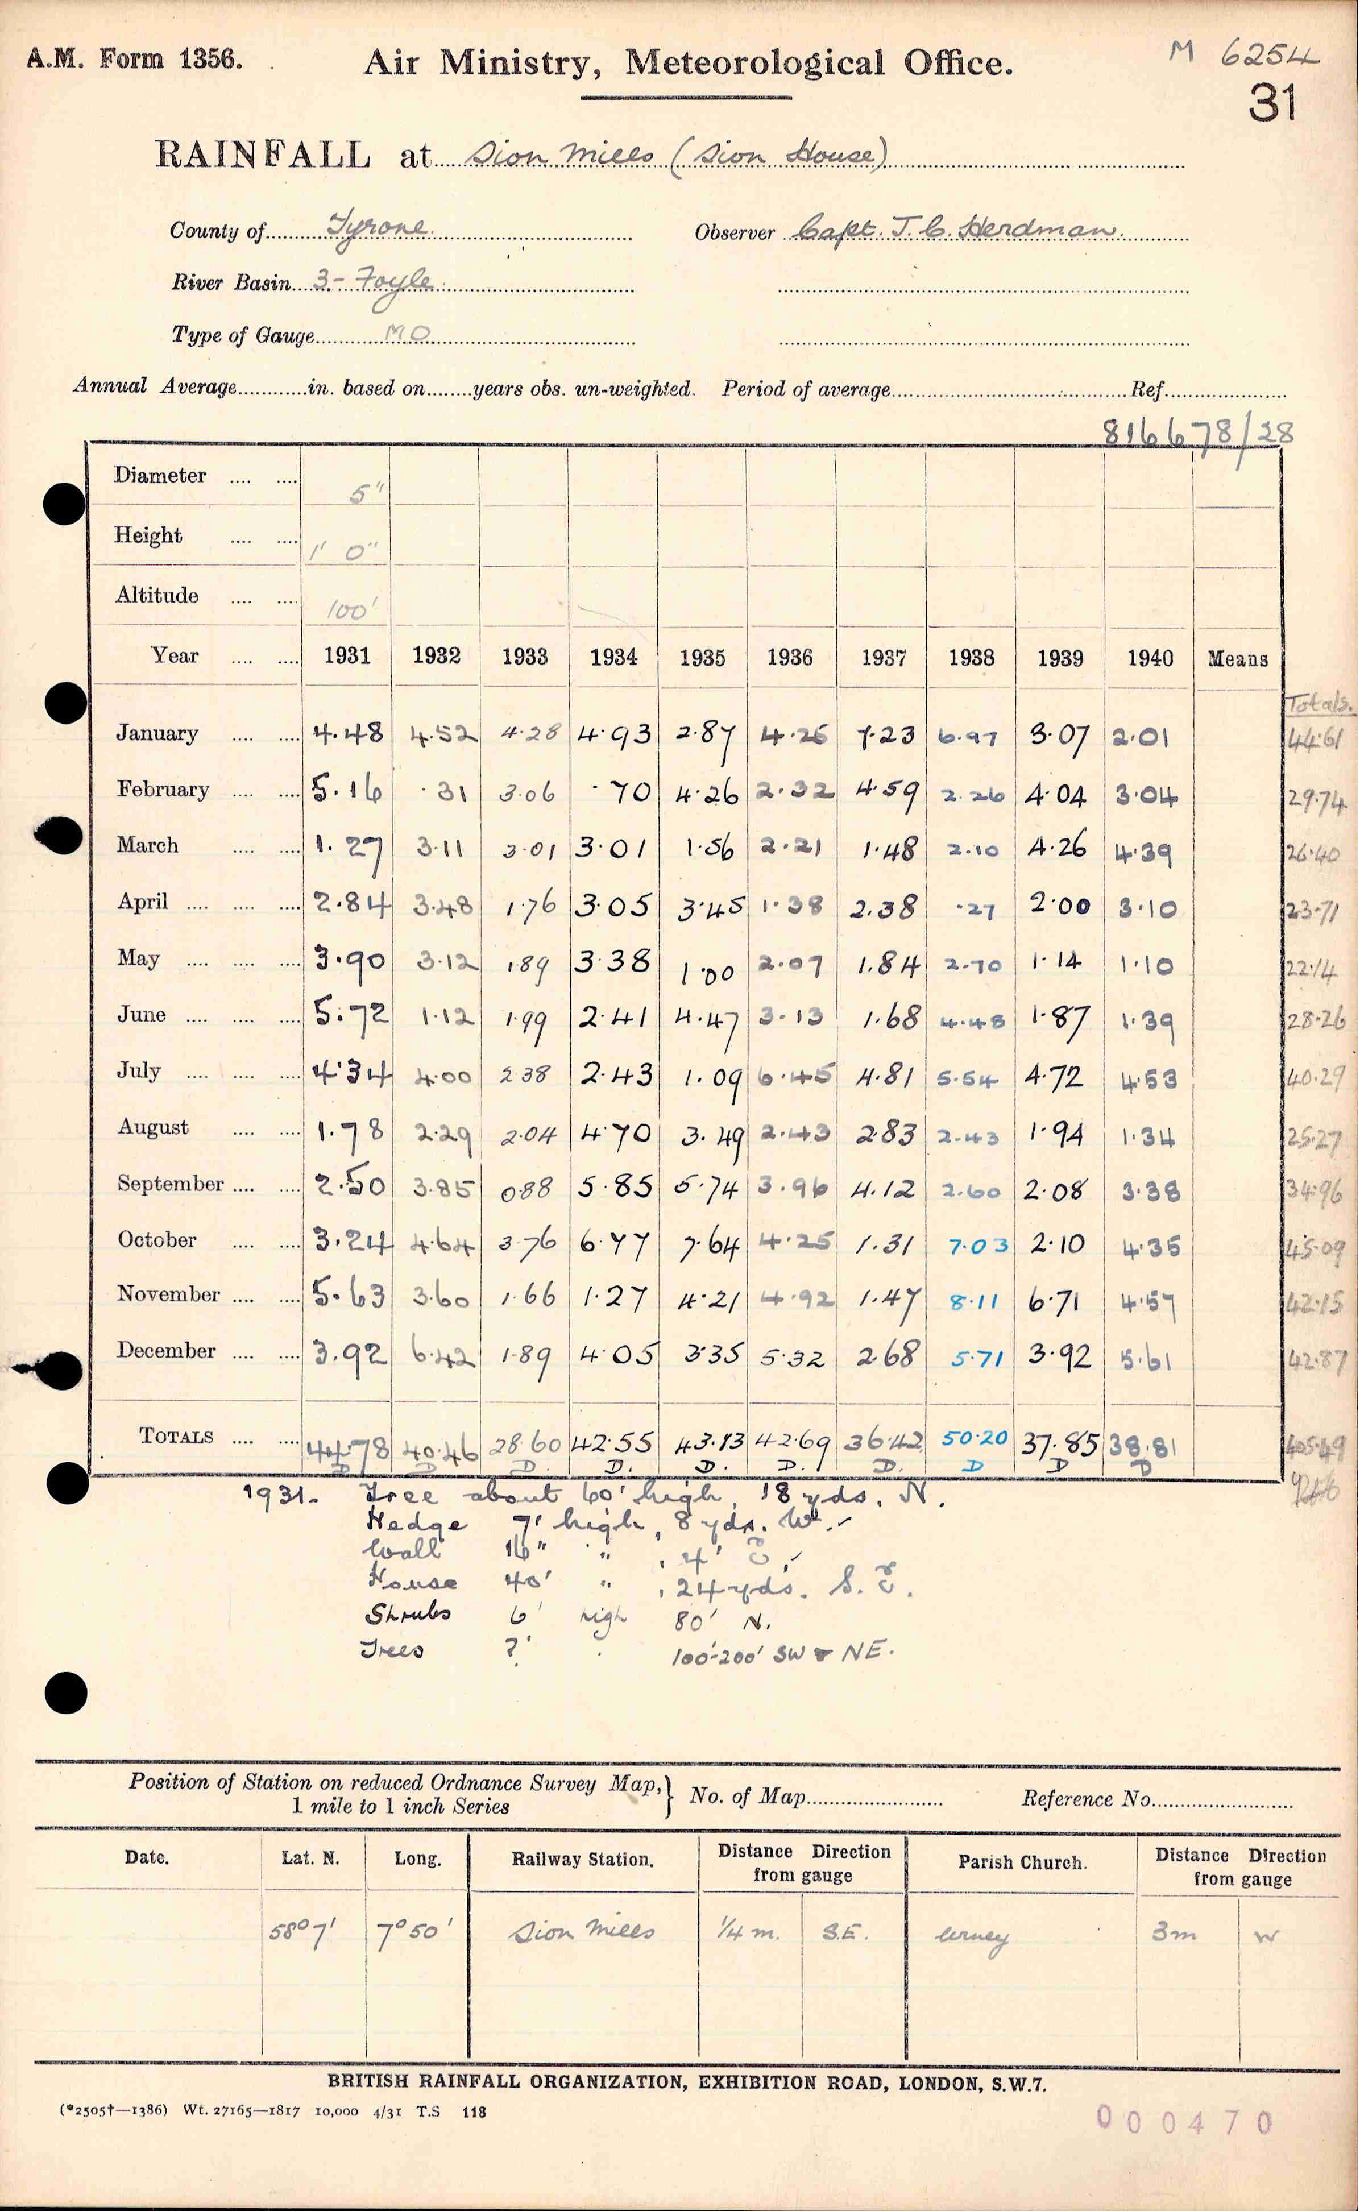 A.M. Form 1356. Air Ministry, Meteorological Office. M 6254
31
RAINFALL at Sion Mills (Sion House)
County of Tyrone. Observer Capt. J. C. Herdman.
River Basin 3- Foyle
Type of Gauge MO
Annual Average in. based on years obs. un-weighted. Period of average Ref.
816678/28
Diameter 5"
Height 1' 0"
Altitude 100'
Year 1931 1932 1933 1934 1935 1936 1937 1938 1939 1940 Means
Totals.
January 4.48 4.52 4.28 4.93 2.87 4.26 7.23 6.97 3.07 2.01 44.61
February 5.16 .31 3.06 .70 4.26 2.32 4.59 2.26 4.04 3.04 29.74
March 1.27 3.11 3.01 3.01 1.56 2.21 1.48 2.10 4.26 4.39 26.40
April 2.84 3.48 1.76 3.05 3.45 1.38 2.38 .27 2.00 3.10 23.71
May 3.90 3.12 1.89 3.38 1.00 2.07 1.84 2.70 1.14 1.10 22.14
June 5.72 1.12 1.99 2.41 4.47 3.13 1.68 4.48 1.87 1.39 28.26
July 4.34 4.00 2.38 2.43 1.09 6.45 4.81 5.54 4.72 4.53 40.29
August 1.78 2.29 2.04 4.70 3.49 2.43 2.83 2.43 1.94 1.34 25.27
September 2.50 3.85 0.88 5.85 5.74 3.96 4.12 2.60 2.08 3.38 34.96
October 3.24 4.64 3.76 6.77 7.64 4.25 1.31 7.03 2.10 4.35 45.09
November 5.63 3.60 1.66 1.27 4.21 4.92 1.47 8.11 6.71 4.57 42.15
December 3.92 6.42 1.89 4.05 3.35 5.32 2.68 5.71 3.92 5.61 42.87
TOTALS 44.78 40.46 28.60 42.55 43.13 42.69 36.42 50.20 37.85 38.81 405.49
D D D. D. D. D. D. D D D
1931. Tree about 60' high, 18 yds. N.
Hedge 7' high, 8 yds. W.
Wall 16" " , 4' E,
House 40' " , 24 yds. S. E.
Shrubs 6' high 80' N.
Trees ?' 100'-200' SW & NE.
Position of Station on reduced Ordnance Survey Map, 1 mile to 1 inch Series } No. of Map Reference No.
Date. Lat. N. Long. Railway Station. Distance Direction from gauge Parish Church. Distance Direction from gauge
58° 7' 7° 50' Sion Mills 1/4 m. S.E. Urney 3m W
BRITISH RAINFALL ORGANIZATION, EXHIBITION ROAD, LONDON, S.W.7.
(*2505†—1386) Wt. 27165—1817 10,000 4/31 T.S 118
000470